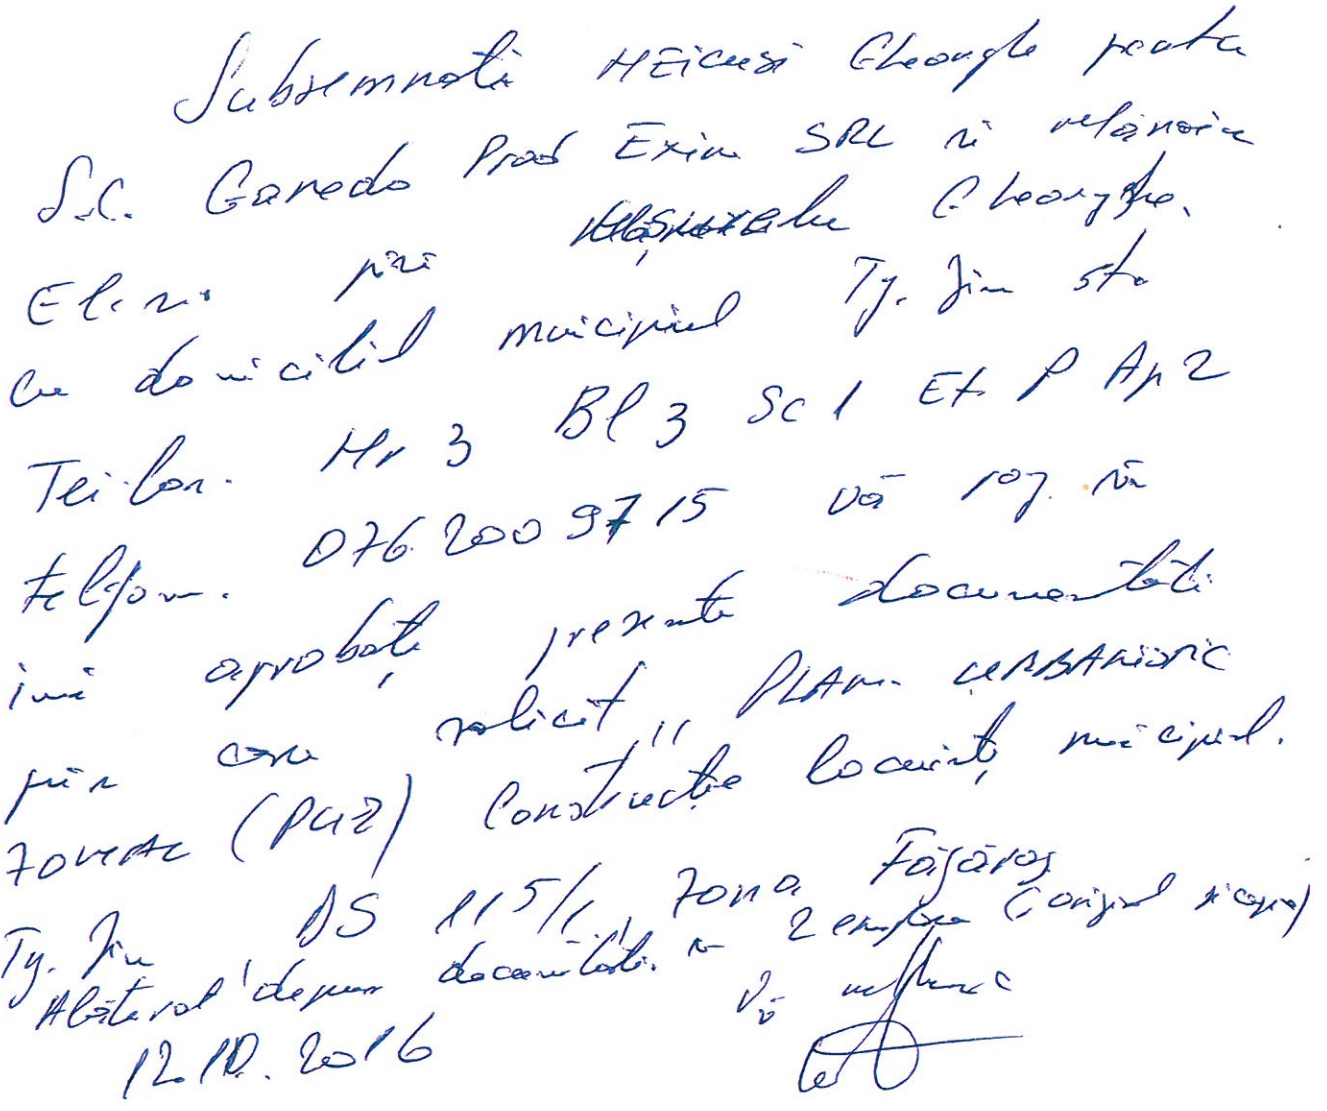 Subsemnatii Gheorghe pentru
S.C. Garedo Prod Exim SRL si
Elena prin Gheorghe.
Cu domiciliul municipiul Tg. Jiu str
Teilor. Nr 3 Bl 3 Sc 1 Et P Ap 2
telefon. 076 200 9715 vă rog. să
imi aprobați prezenta documentatii
prin care solicit „ PLAN URBANISTIC
ZONAL (PUZ) Construcție locuinț municipiul.
Tg. Jiu DS 115/1, zona Făgăraș
Alăturat depun documentatii. in 2 exemplare (original si copie)
Vă
12.10.2016